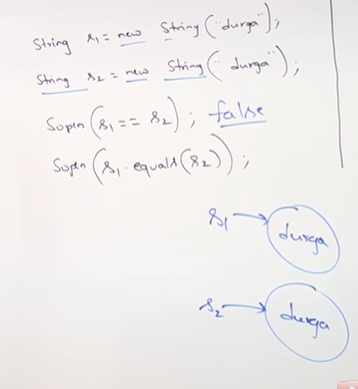 String s1 = new String("durga");
String s2 = new String("durga");
Sopln(s1 == s2); false
Sopln(s1.equals(s2));
s1 → durga
s2 → durga